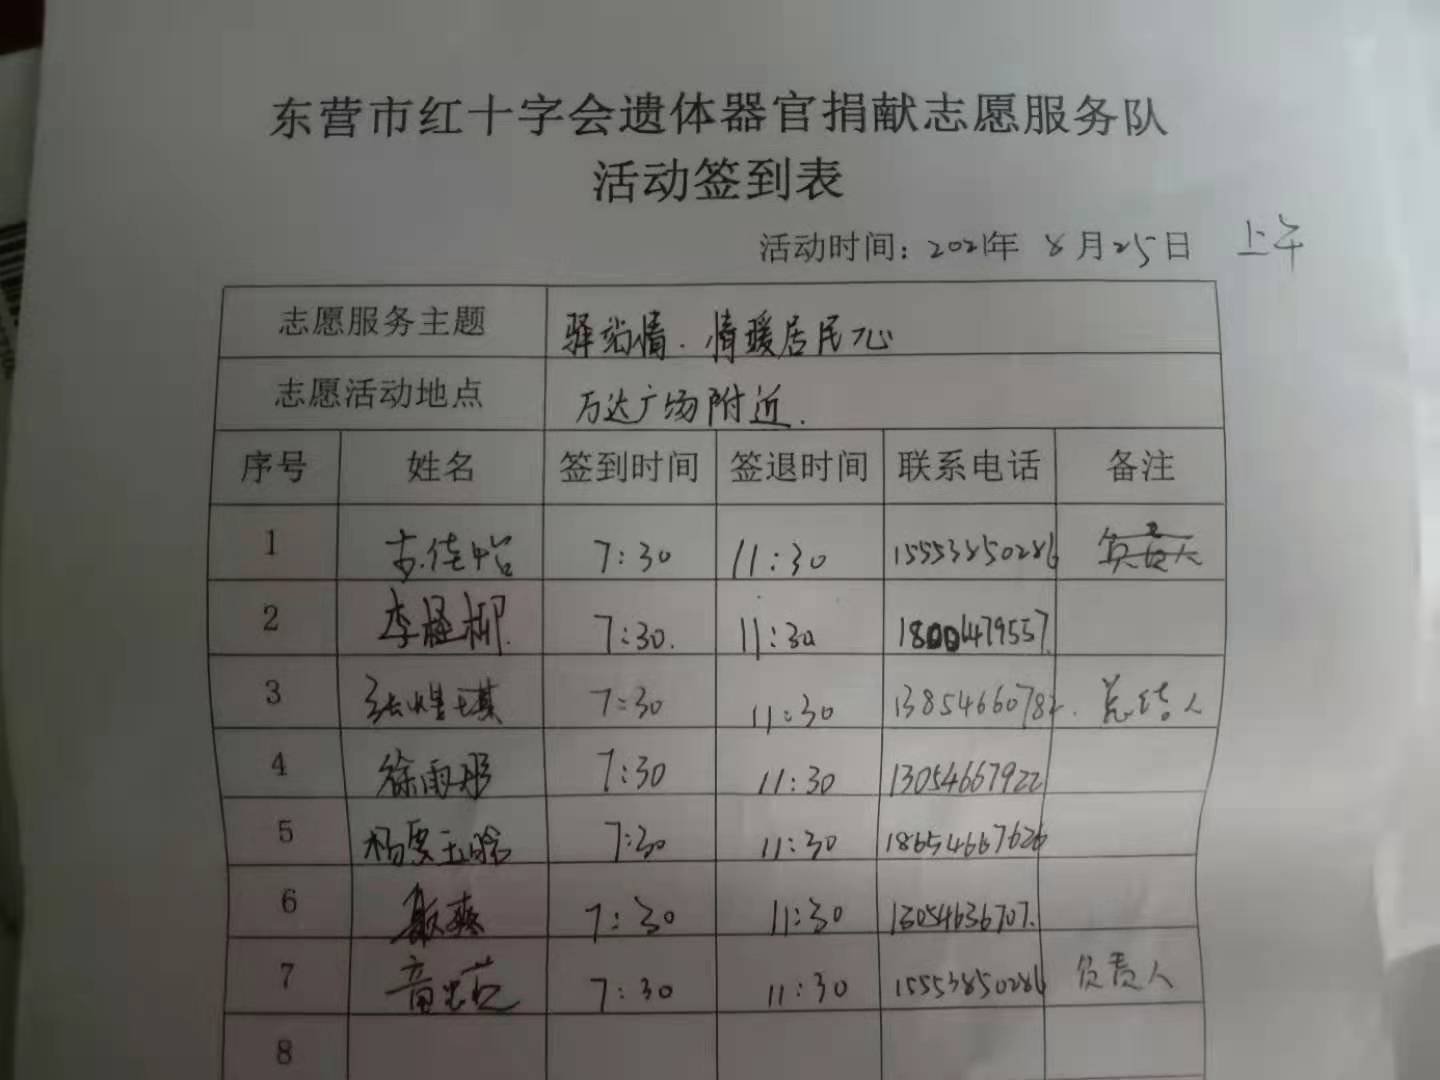 东营市红十字会遗体器官捐献志愿服务队
活动签到表
活动时间：2021年 8月25日 上午
志愿服务主题 驿站情.情暖居民心
志愿活动地点 万达广场附近.
序号 姓名 签到时间 签退时间 联系电话 备注
1 佳怡 7:30 11:30 15553850286 负责人
2 李 柳. 7:30. 11:30 18004479557.
3 张煜琪 7:30 11:30 13854660782. 总结人
4 徐雨彤 7:30 11:30 13054667922
5 杨贾玉晗 7:30 11:30 18654667626
6 7:30 11:30 13054636707.
7 7:30 11:30 15553850286 负责人
8